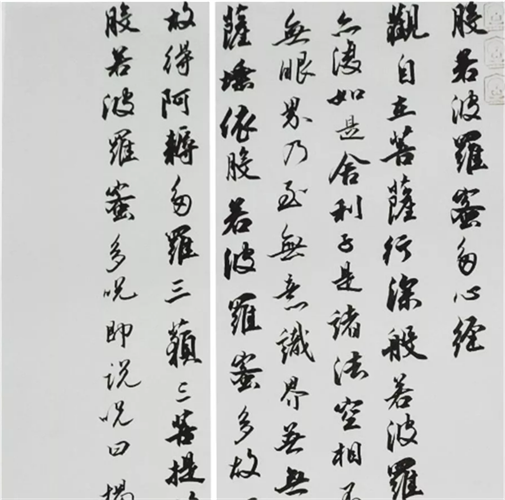 般若波羅蜜多心經
觀自在菩薩行深般若波羅
亦復如是舍利子是諸法空相不
無眼界乃至無意識界無無
薩埵依般若波羅蜜多故
故得阿耨多羅三藐三菩提
般若波羅蜜多呪即説呪曰揭